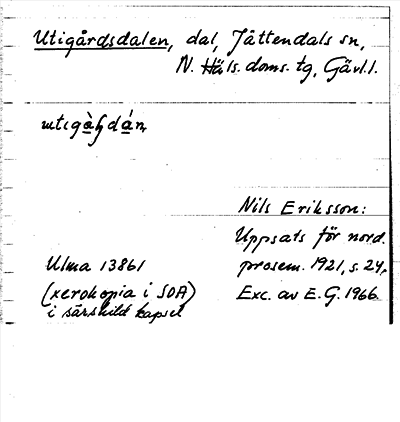 Utigårdsdalen, dal, Jättendals sn,
N. Häls. doms. tg, Gävl. l.
Nils Eriksson:
Uppsats för nord.
Ulma 13861
prosem. 1921, s. 24,
(xerokopia i SOA)
Exc. av E. G. 1966.
i särskild kapsel